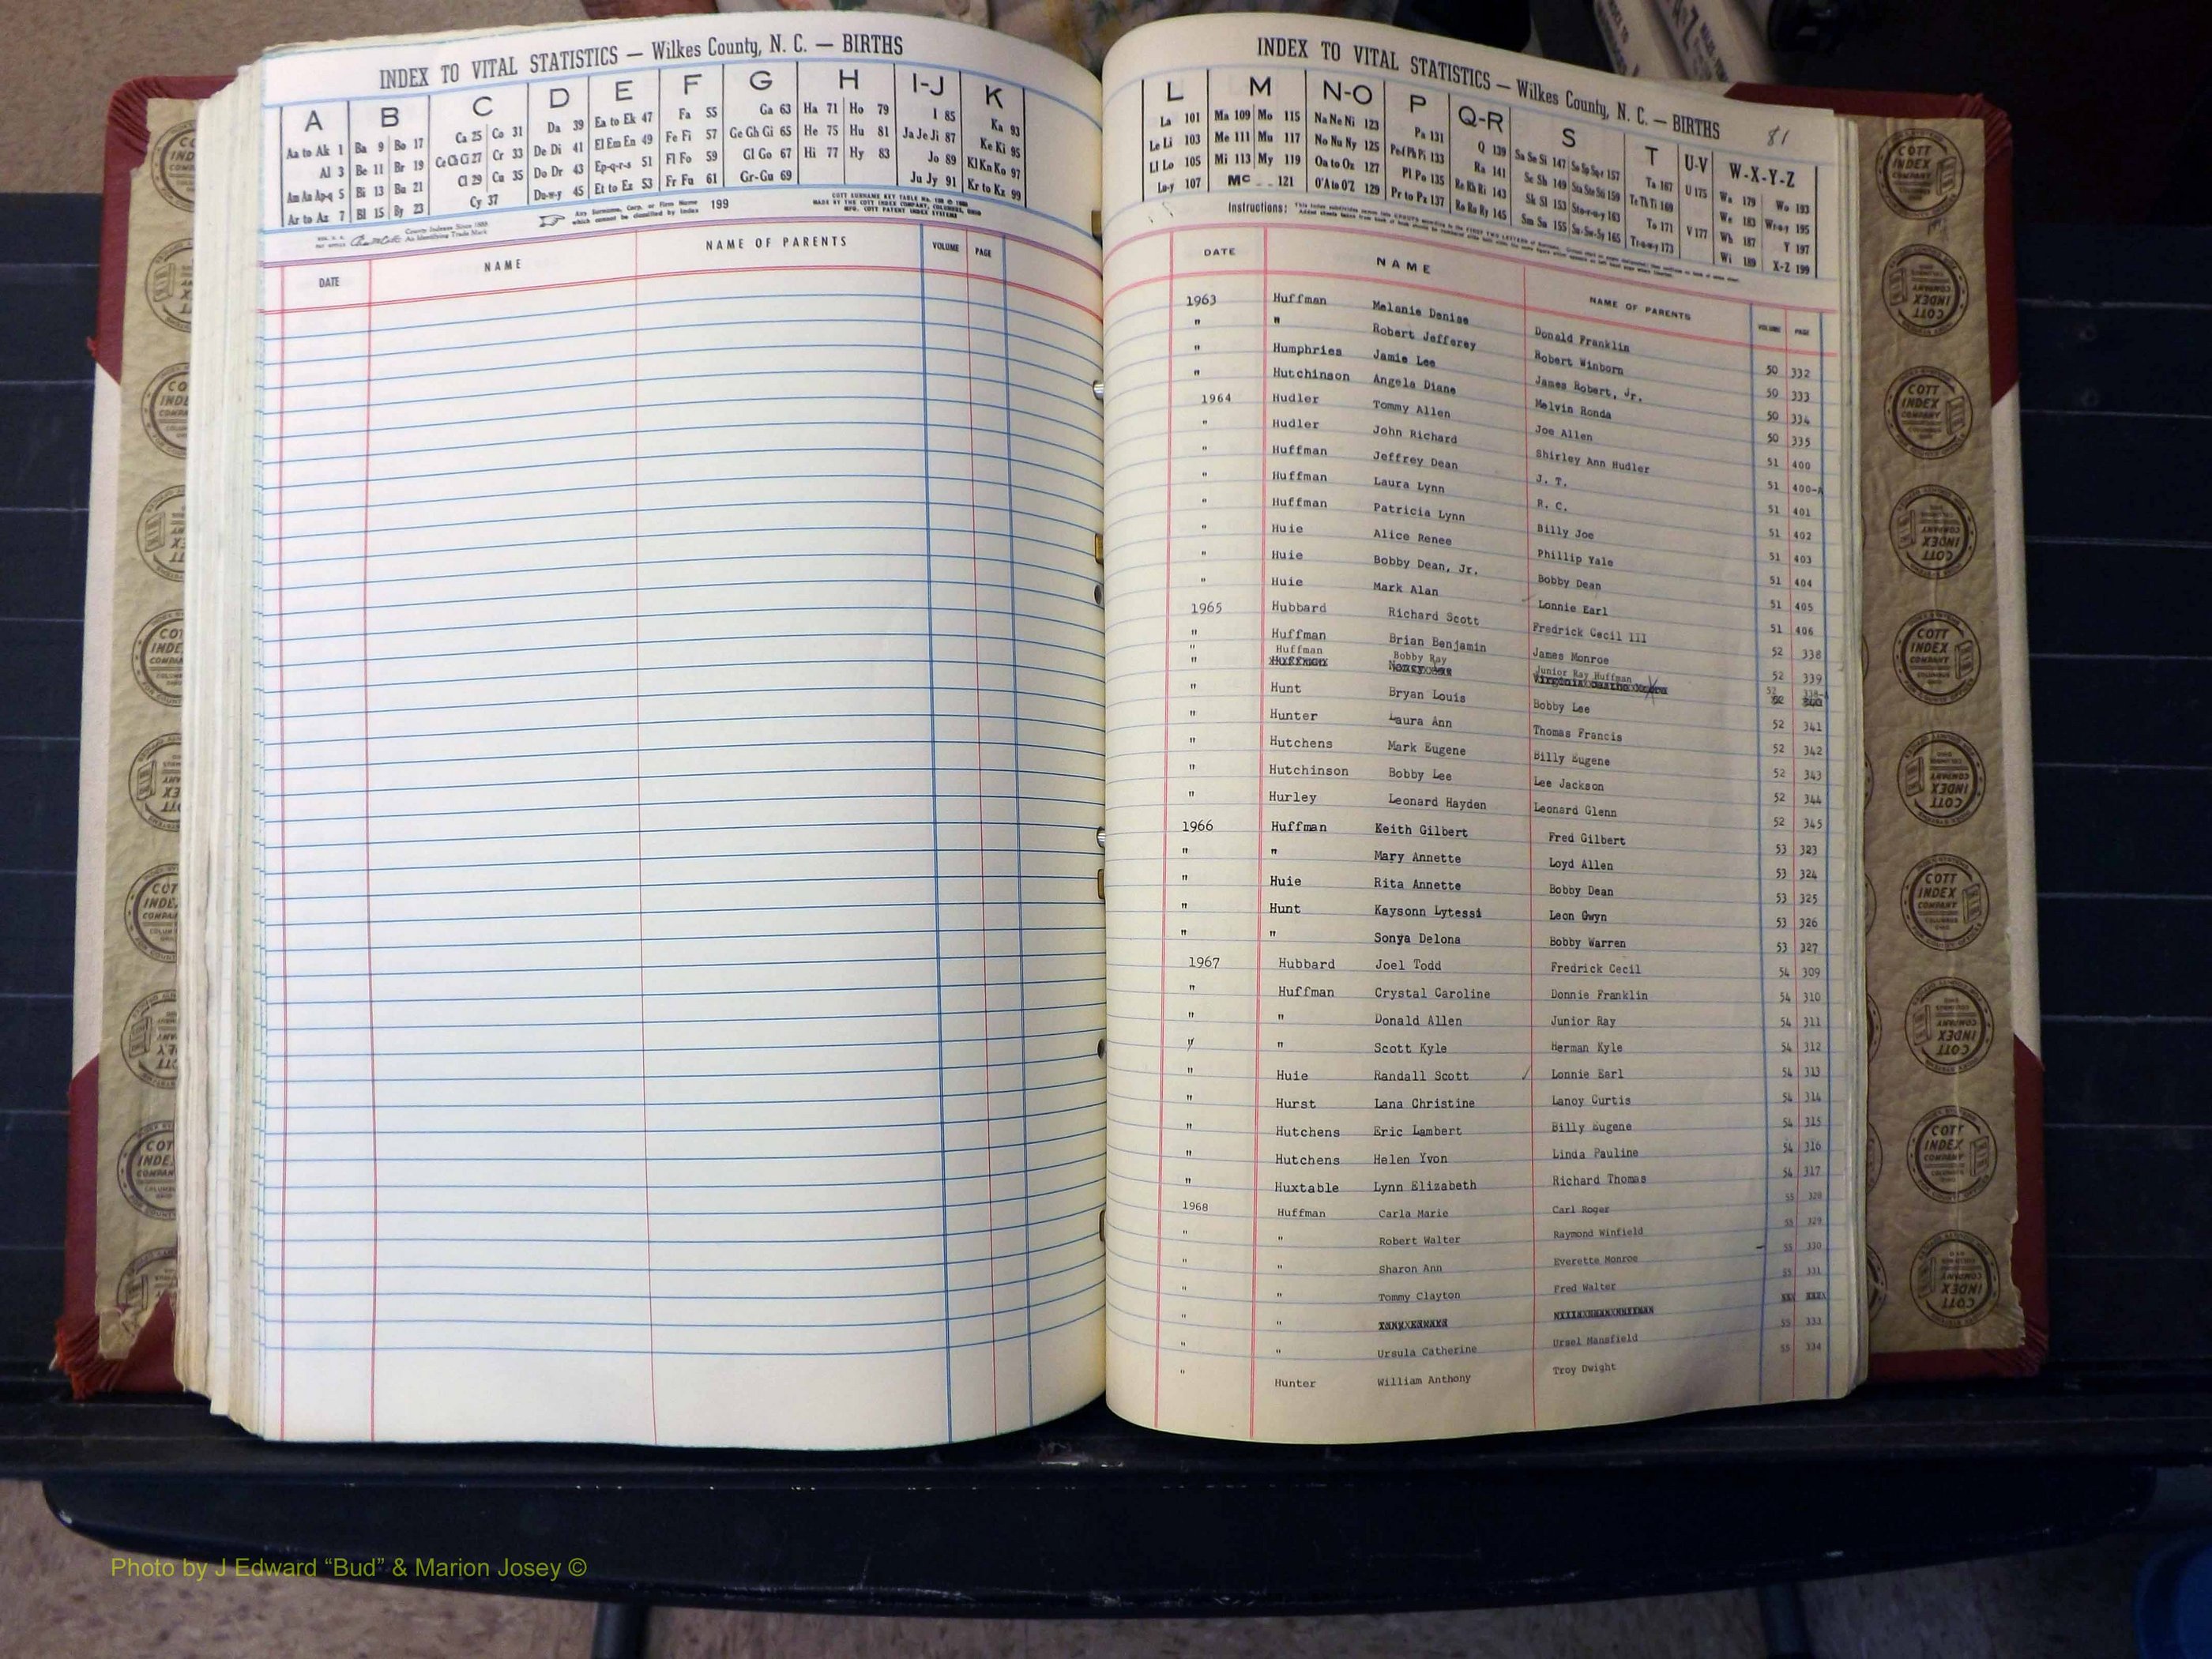 INDEX TO VITAL STATISTICS — Wilkes County, N. C. — BIRTHS
A B C D E F G H I-J K
Aa to Ak 1 Ba 9 Bo 17 Ca 25 Co 31 Da 39 Ea to Ek 47 Fa 55 Ga 63 Ha 71 Ho 79 I 85 Ka 93
Al 3 Be 11 Br 19 Ce Ch Ci 27 Cr 33 De Di 41 El Em En 49 Fe Fi 57 Ge Gh Gi 65 He 75 Hu 81 Ja Je Ji 87 Ke Ki 95
Am An Ap-q 5 Bi 13 Bu 21 Cl 29 Cu 35 Do Dr 43 Ep-q-r-s 51 Fl Fo 59 Gl Go 67 Hi 77 Hy 83 Jo 89 Kl Kn Ko 97
Ar to Az 7 Bl 15 By 23 Cy 37 Du-w-y 45 Et to Ez 53 Fr Fu 61 Gr-Gu 69 Ju Jy 91 Kr to Kz 99
County Indexes Since 1888
An Identifying Trade Mark
Any Surname, Corp. or Firm Name
which cannot be classified by index 199
MADE BY THE COTT INDEX COMPANY, COLUMBUS, OHIO
DATE NAME NAME OF PARENTS VOLUME PAGE
INDEX TO VITAL STATISTICS — Wilkes County, N. C. — BIRTHS
81
L M N-O P Q-R S T U-V W-X-Y-Z
La 101 Ma 109 Mo 115 Na Ne Ni 123 Pa 131 Q 139 Sa Se Si 147 So Sp Sq-r 157 Ta 167 U 175 Wa 179 Wo 193
Le Li 103 Me 111 Mu 117 No Nu Ny 125 Pe-f Ph Pi 133 Ra 141 Sc Sh 149 Sta Ste Sti 159 Te Th Ti 169 V 177 We 183 Wr-u-y 195
Ll Lo 105 Mi 113 My 119 Oa to Oz 127 Pl Po 135 Re Rh Ri 143 Sk Sl 153 Sto-r-u-y 163 To 171 Wh 187 Y 197
Lu-y 107 Mc 121 O'A to O'Z 129 Pr to Pz 137 Ro Ru Ry 145 Sm Sn 155 Su-Sw-Sy 165 Tr-u-w-y 173 Wi 189 X-Z 199
Instructions:
DATE NAME NAME OF PARENTS VOLUME PAGE
1963 Huffman Melanie Denise Donald Franklin 50 332
" " Robert Jefferey Robert Winborn 50 333
" Humphries Jamie Lee James Robert, Jr. 50 334
" Hutchinson Angela Diane Melvin Ronda 50 335
1964 Hudler Tommy Allen Joe Allen 51 400
" Hudler John Richard Shirley Ann Hudler 51 400-A
" Huffman Jeffrey Dean J. T. 51 401
" Huffman Laura Lynn R. C. 51 402
" Huffman Patricia Lynn Billy Joe 51 403
" Huie Alice Renee Phillip Yale 51 404
" Huie Bobby Dean, Jr. Bobby Dean 51 405
" Huie Mark Alan Lonnie Earl 51 406
1965 Hubbard Richard Scott Fredrick Cecil III 52 338
" Huffman Brian Benjamin James Monroe 52 339
" Huffman Bobby Ray Junior Ray Huffman 52 338-A
" Hunt Bryan Louis Bobby Lee 52 341
" Hunter Laura Ann Thomas Francis 52 342
" Hutchens Mark Eugene Billy Eugene 52 343
" Hutchinson Bobby Lee Lee Jackson 52 344
" Hurley Leonard Hayden Leonard Glenn 52 345
1966 Huffman Keith Gilbert Fred Gilbert 53 323
" " Mary Annette Loyd Allen 53 324
" Huie Rita Annette Bobby Dean 53 325
" Hunt Kaysonn Lytessi Leon Gwyn 53 326
" " Sonya Delona Bobby Warren 53 327
1967 Hubbard Joel Todd Fredrick Cecil 54 309
" Huffman Crystal Caroline Donnie Franklin 54 310
" " Donald Allen Junior Ray 54 311
" " Scott Kyle Herman Kyle 54 312
" Huie Randall Scott Lonnie Earl 54 313
" Hurst Lana Christine Lanoy Curtis 54 314
" Hutchens Eric Lambert Billy Eugene 54 315
" Hutchens Helen Yvon Linda Pauline 54 316
" Huxtable Lynn Elizabeth Richard Thomas 54 317
1968 Huffman Carla Marie Carl Roger 55 328
" " Robert Walter Raymond Winfield 55 329
" " Sharon Ann Everette Monroe 55 330
" " Tommy Clayton Fred Walter 55 331
" "
" " Ursula Catherine Ursel Mansfield 55 333
" Hunter William Anthony Troy Dwight 55 334
COTT INDEX COMPANY COLUMBUS OHIO
Photo by J Edward “Bud” & Marion Josey ©